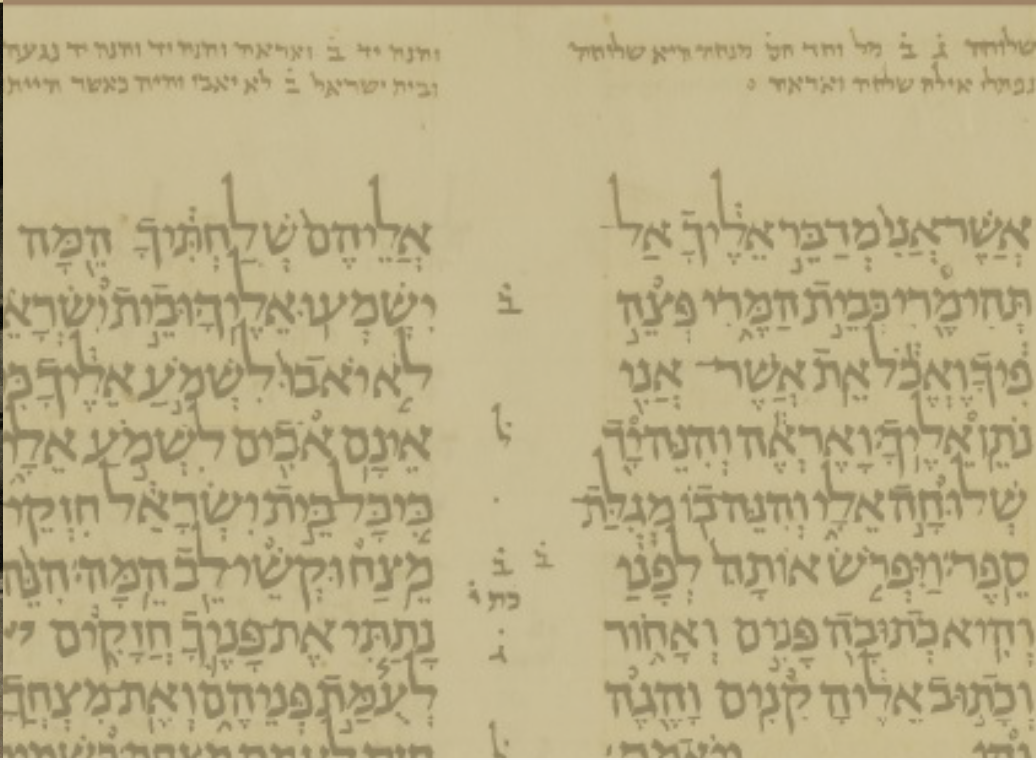 שלוחה ג̇ ב̇ מל וחד חס̇ מנחה היא שלוחה
נפתלי אילה שלחה ואראה
אֲשֶׁר אֲנִי מְדַבֵּר אֵלֶיךָ אַל
תְּהִי מֶרִי כְּבֵית הַמֶּרִי פְּצֵה
פִּיךָ וֶאֱכֹל אֵת אֲשֶׁר אֲנִי
נֹתֵן אֵלֶיךָ וָאֶרְאֶה וְהִנֵּה יָד
שְׁלוּחָה אֵלָי וְהִנֵּה בוֹ מְגִלַּת
סֵפֶר וַיִּפְרֹשׂ אוֹתָהּ לְפָנַי
וְהִיא כְתוּבָה פָּנִים וְאָחוֹר
וְכָתוּב אֵלֶיהָ קִנִים וָהֶגֶה
ב̇
ל̇
ב̇ ב̇
כת י̇
ג̇
ל̇
והנה יד ב̇ ואראה והנה יד והנה יד נגעה
ובית ישראל ב̇ לא יאבו והיה כאשר היית
אֲלֵיהֶם שְׁלַחְתִּיךָ הֵמָּה
יִשְׁמְעוּ אֵלֶיךָ וּבֵית יִשְׂרָאֵ
לֹא יֹאבוּ לִשְׁמֹעַ אֵלֶיךָ כִּ
אֵינָם אֹבִים לִשְׁמֹעַ אֵלָי
כִּי כָּל בֵּית יִשְׂרָאֵל חִזְקֵי
מֵצַח וּקְשֵׁי לֵב הֵמָּה הִנֵּה
נָתַתִּי אֶת פָּנֶיךָ חֲזָקִים
לְעֻמַּת פְּנֵיהֶם וְאֶת מִצְחֲךָ